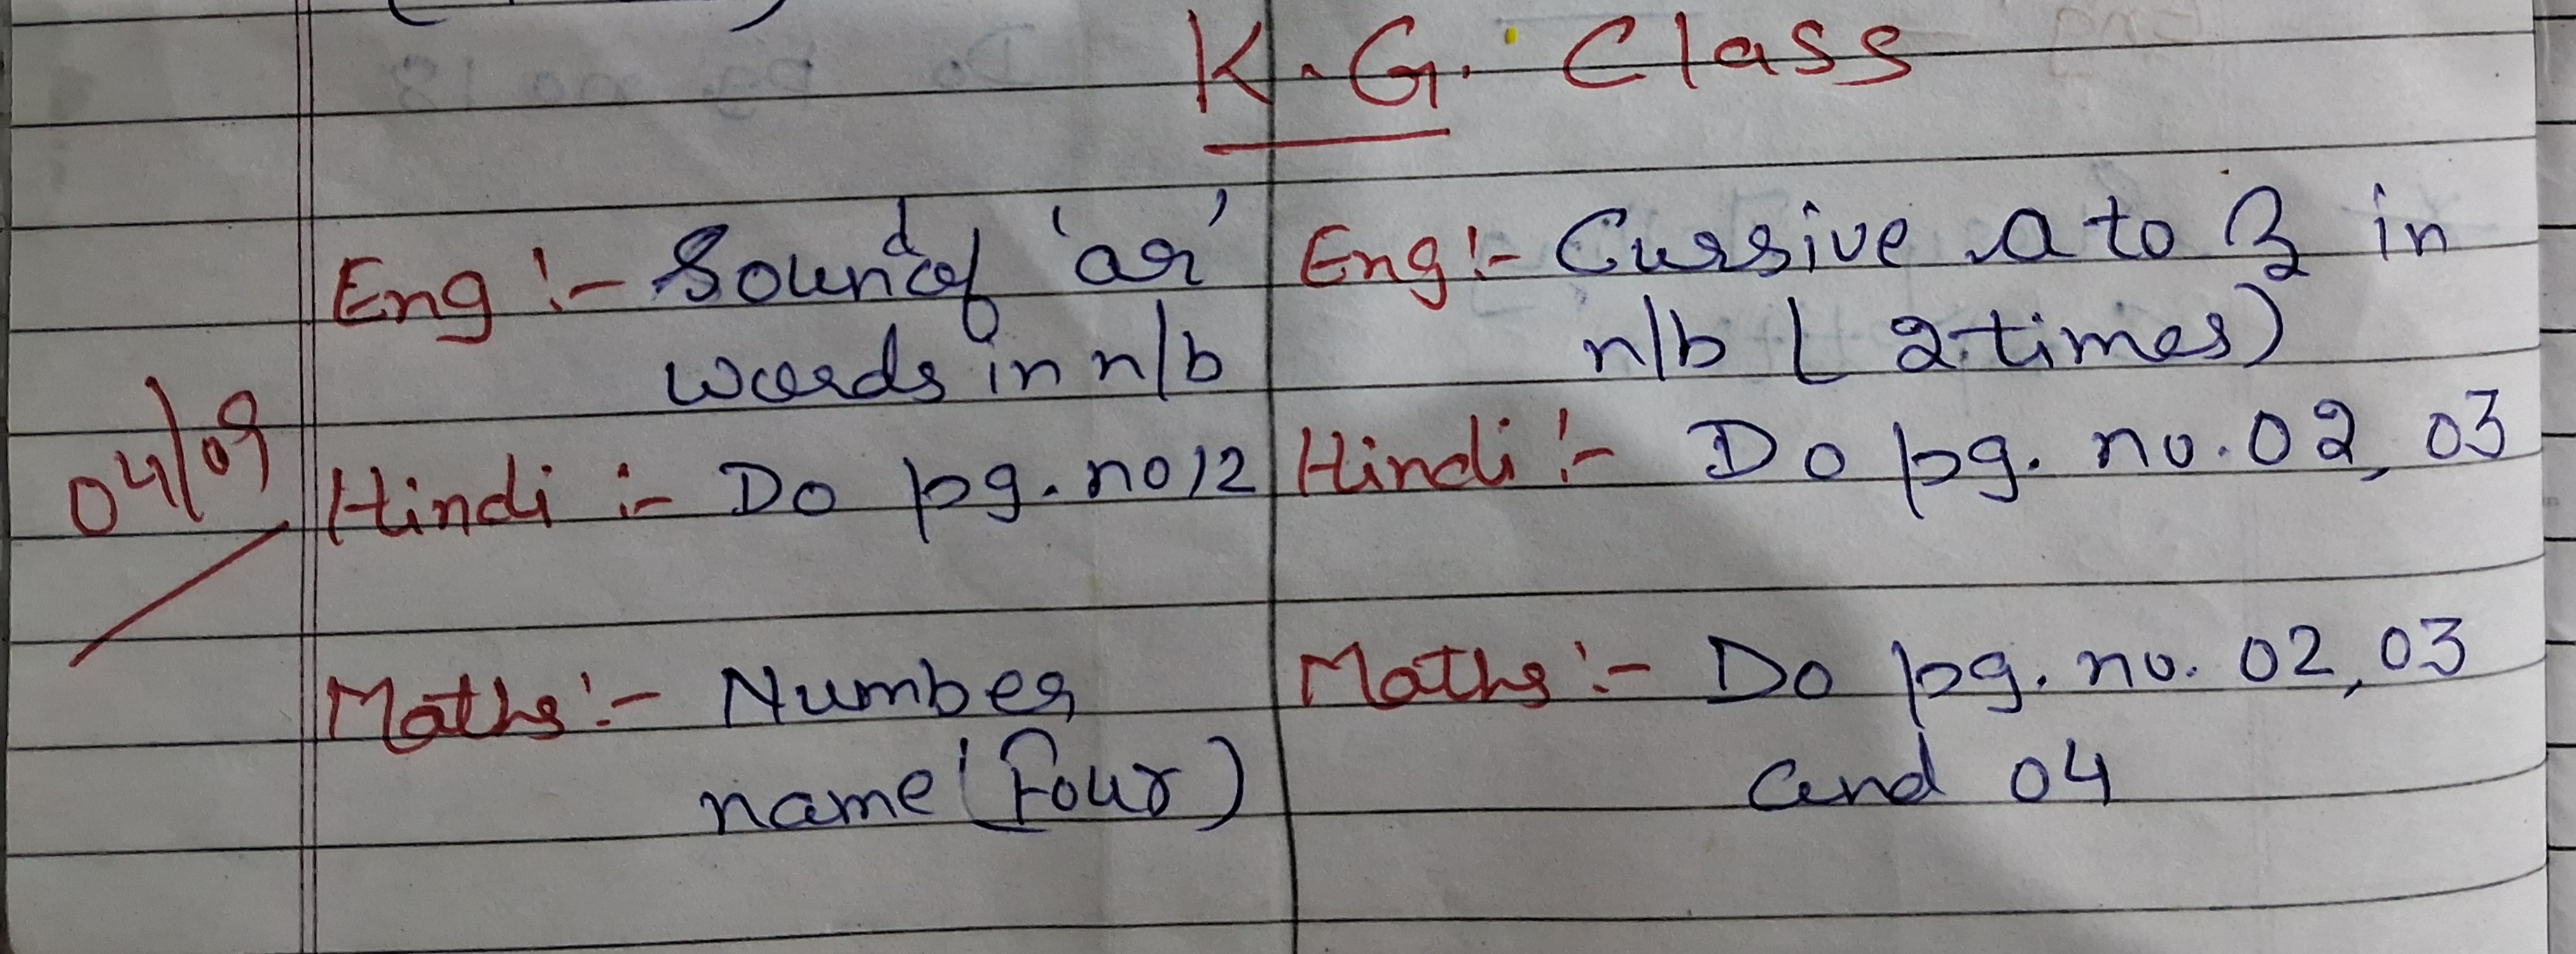 K.G. Class
04/09
Eng :- Sound of 'ar'
words in n/b
Hindi :- Do pg. no 12
Maths :- Number
name (Four)
Eng :- Cursive a to z in
n/b ( 2 times)
Hindi :- Do pg. no. 02, 03
Maths :- Do pg. no. 02, 03
and 04